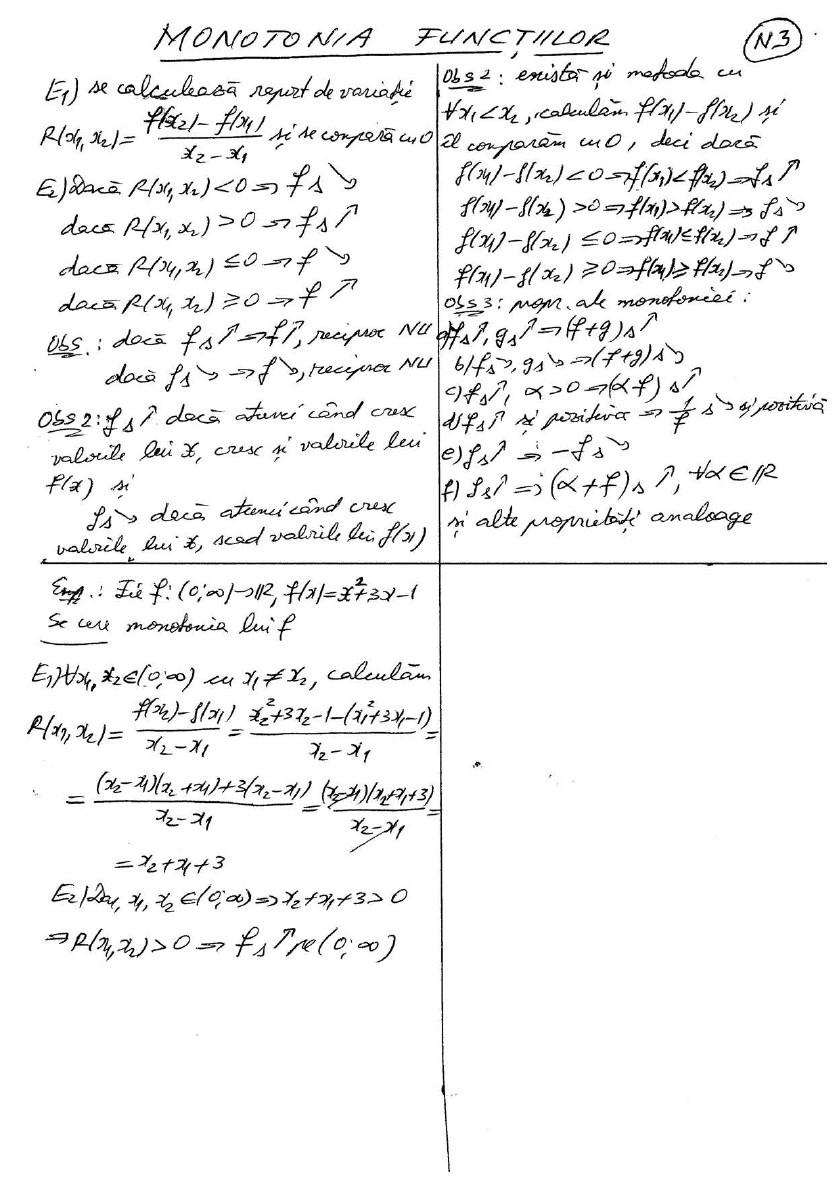 MONOTONIA FUNCȚIILOR
N3
E₁) se calculează raport de variație
R(x₁, x₂) = (f(x₂) - f(x₁)) / (x₂ - x₁) și se compară cu 0
E₂) Dacă R(x₁, x₂) < 0 ⇒ f s ↘
dacă R(x₁, x₂) > 0 ⇒ f s ↗
dacă R(x₁, x₂) ≤ 0 ⇒ f ↘
dacă R(x₁, x₂) ≥ 0 ⇒ f ↗
Obs.: dacă f s ↗ ⇒ f ↗, reciproc NU
dacă f s ↘ ⇒ f ↘, reciproc NU
Obs 2: f s ↗ dacă atunci când cresc
valorile lui x, cresc și valorile lui
f(x) și
f s ↘ dacă atunci când cresc
valorile lui x, scad valorile lui f(x)
Obs 2: există și metoda cu
∀x₁ < x₂, calculăm f(x₁) - f(x₂) și
îl comparăm cu 0, deci dacă
f(x₁) - f(x₂) < 0 ⇒ f(x₁) < f(x₂) ⇒ f s ↗
f(x₁) - f(x₂) > 0 ⇒ f(x₁) > f(x₂) ⇒ f s ↘
f(x₁) - f(x₂) ≤ 0 ⇒ f(x₁) ≤ f(x₂) ⇒ f ↗
f(x₁) - f(x₂) ≥ 0 ⇒ f(x₁) ≥ f(x₂) ⇒ f ↘
Obs 3: propr. ale monotoniei:
a) f s ↗, g s ↗ ⇒ (f+g) s ↗
b) f s ↘, g s ↘ ⇒ (f+g) s ↘
c) f s ↗, α > 0 ⇒ (αf) s ↗
d) f s ↗ și pozitivă ⇒ 1/f s ↘ și pozitivă
e) f s ↗ ⇒ -f s ↘
f) f s ↗ ⇒ (α + f) s ↗, ∀α ∈ ℝ
și alte proprietăți analoage
Exp.: Fie f: (0; ∞) → ℝ, f(x) = x² + 3x - 1
Se cere monotonia lui f
E₁) ∀x₁, x₂ ∈ (0; ∞) cu x₁ ≠ x₂, calculăm
R(x₁, x₂) = (f(x₂) - f(x₁)) / (x₂ - x₁) = (x₂² + 3x₂ - 1 - (x₁² + 3x₁ - 1)) / (x₂ - x₁) =
= ((x₂ - x₁)(x₂ + x₁) + 3(x₂ - x₁)) / (x₂ - x₁) = ((x₂ - x₁)(x₂ + x₁ + 3)) / (x₂ - x₁) =
= x₂ + x₁ + 3
E₂) Dar, x₁, x₂ ∈ (0; ∞) ⇒ x₂ + x₁ + 3 > 0
⇒ R(x₁, x₂) > 0 ⇒ f s ↗ pe (0; ∞)